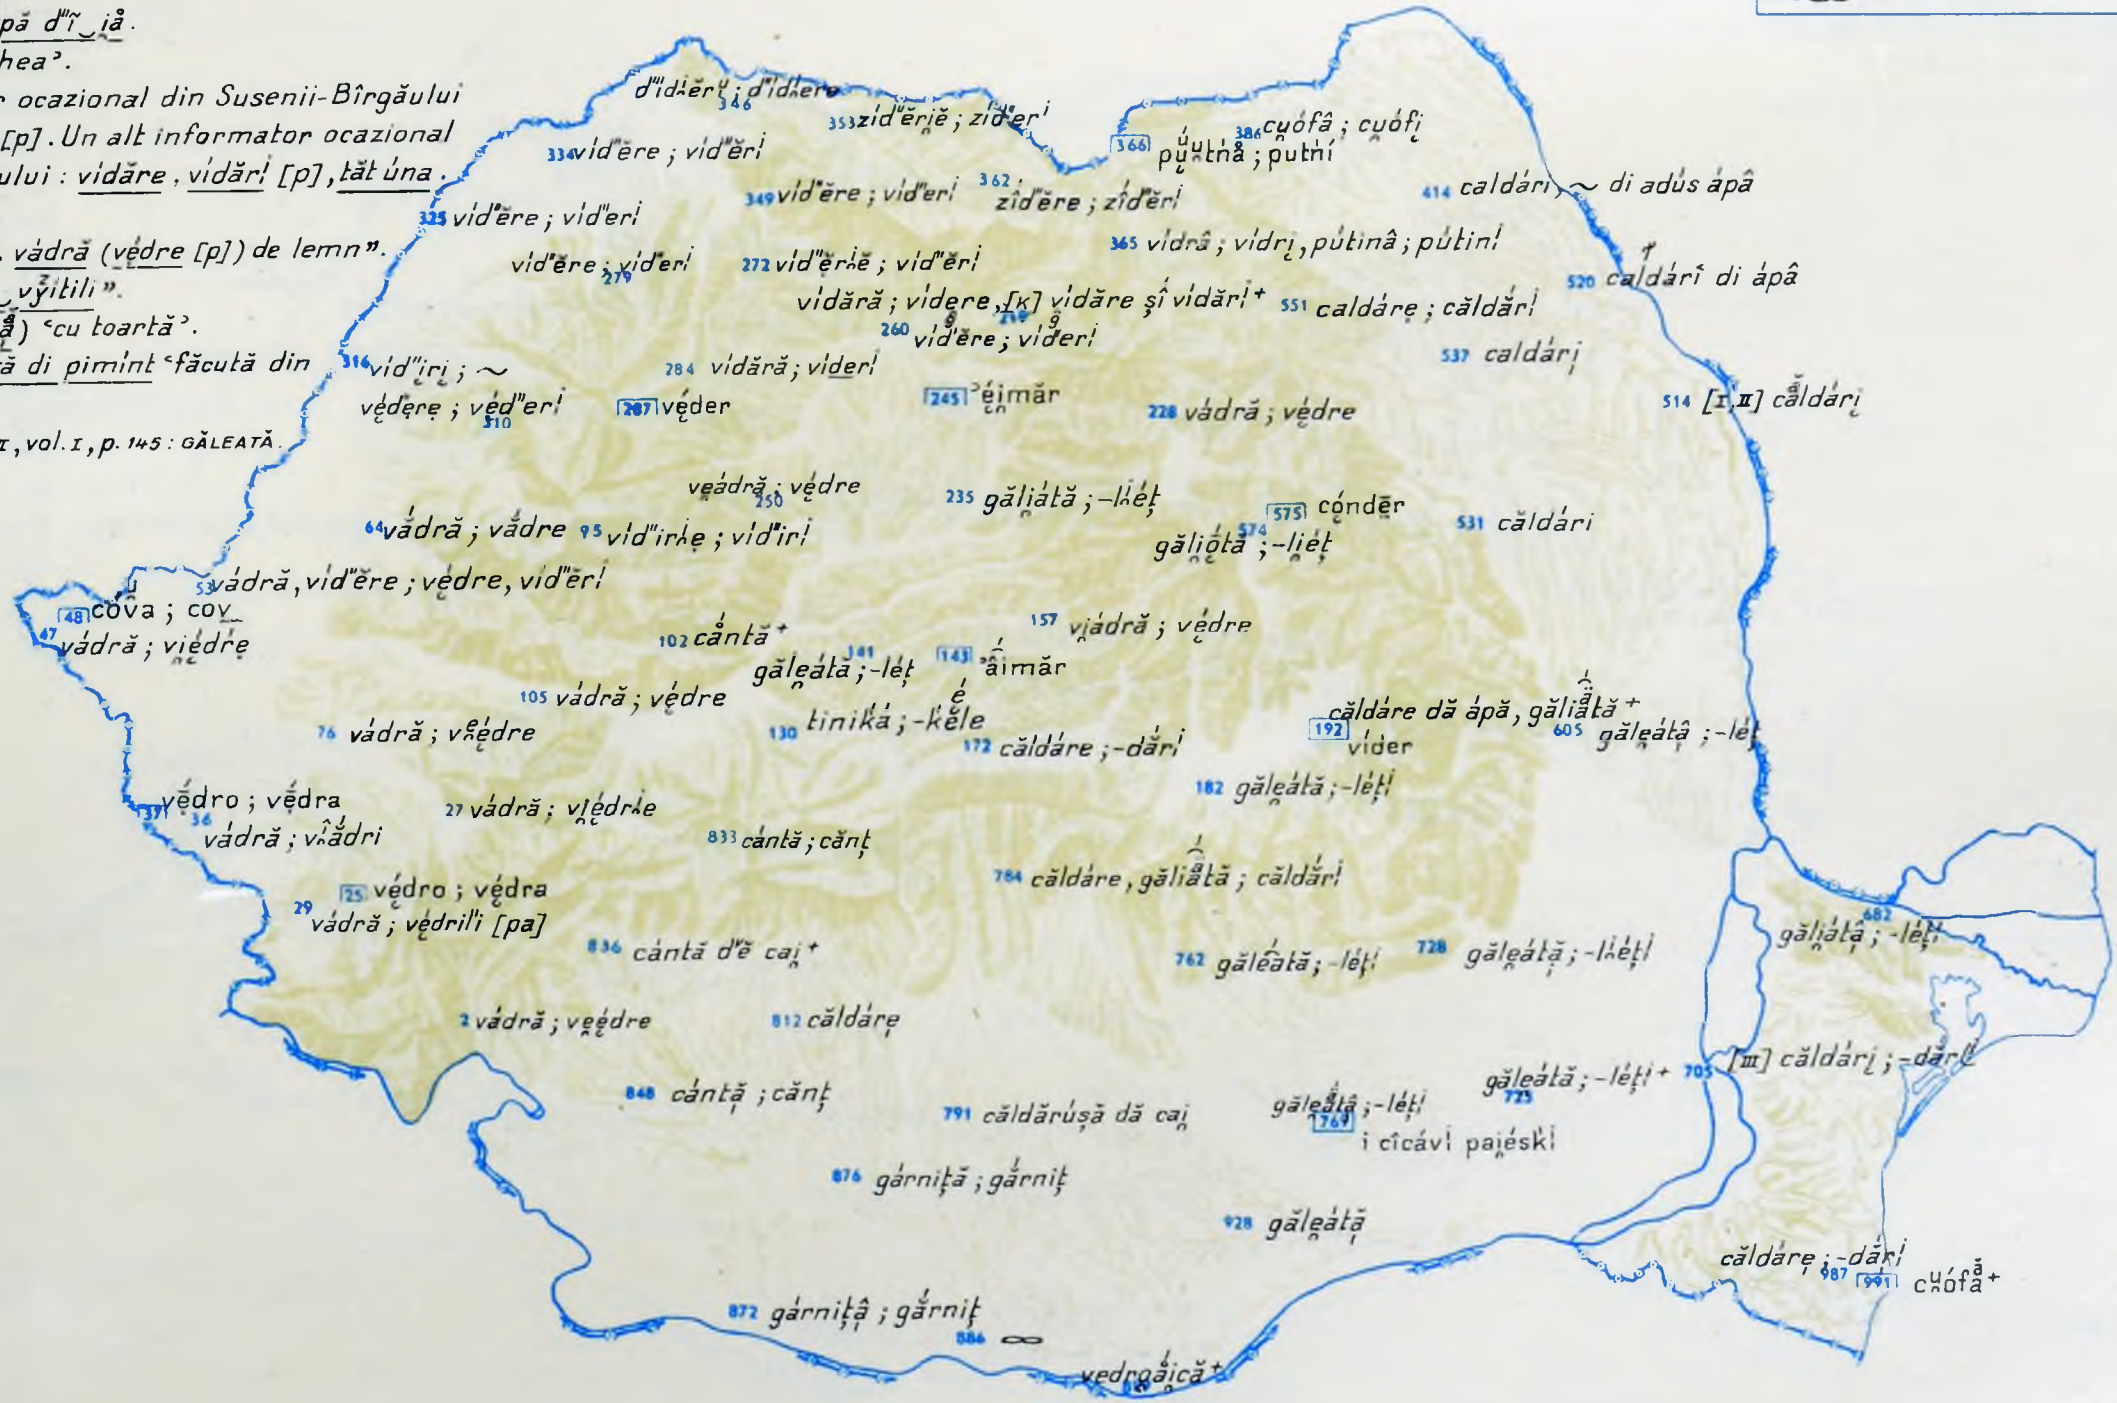 pă d"ĩ‿i̯å.
hea’.
r ocazional din Susenii-Bîrgăului
[p]. Un alt informator ocazional
ului : vidăre, vidărⁱ [p], tăt úna.
vádră (vé̯dre [p]) de lemn”.
‿vy̆itili”.
) ‘cu toartă’.
ă di pimínt ‘făcută din
I, vol. I, p. 145 : GĂLEATĂ.
346
353 zíd"ĕri̯ĕ ; zíd"erⁱ
334 víd"ĕre ; víd"ĕrⁱ
366 ; putńí
386 cu̯ófâ ; cu̯ófi̯
349 víd"ĕre ; víd"erⁱ
362 zíd"ĕre ; zîd"ĕrⁱ
414 caldári, ~ di adús ápâ
325 víd"ĕre ; víd"erⁱ
365 vídrâ ; vídri̯, pútinâ ; pútinⁱ
víd"ĕre ; víd"erⁱ
279
272 ; víd"ĕrⁱ
520 caldárî di ápâ
vídără ; vídere, [k] vídăre șî vídărⁱ +
551 caldáre̦ ; căldắrⁱ
260 víd"ĕre ; víd"erⁱ
537 caldári̯
316 víd"iri̯ ; ~
284 vídără ; víderⁱ
514 [I, II] căldári̯
vé̯de̦re̦ ; véd"erⁱ
310
287 vé̯der
245 ʾéi̯măr
228 vádră ; vé̯dre
ve̯ádră ; vé̯dre
250
235 găli̯átă ; -lʹéț
575 cóndĕr
574
găli̯ótă ; -li̯éț
531 căldári
64 vắdră ; vắdre
95 víd"irʹe̦ ; víd"irⁱ
53 vádră, víd"ĕre ; vé̯dre, víd"ĕrⁱ
48 cóva ; cov
47 vádră ; vi̯édre̦
102 cắntă +
157 vi̯ádră ; vé̯dre
găle̯átă ; -léț
141
143 ʾấimăr
105 vádră ; vé̯dre
76 vádră ; vʹé̯dre
130 tiniḱá ; -ḱĕle
172 căldáre ; -dắrⁱ
căldáre dă ápă, găliátă +
192 víder
605 găle̯átâ̦ ; -léț
182 găle̯átă ; -léțⁱ
37 vé̯dro ; vé̯dra
36 vádră ; vʹắdri
27 vádră ; vi̯édrʹe
833 cántă ; cănț
784 căldáre, găliátă ; căldắrⁱ
25 vé̯dro ; vé̯dra
29 vádră ; vé̯drili [pa]
836 cántă d"ĕ cai̯ +
762 găleátă ; -léțⁱ
728 găle̯átă̦ ; -lʹéțⁱ
682 găli̯átâ̦ ; -léțⁱ
2 vádră ; ve̯é̯dre
812 căldáre̦
848 cántă̦ ; cănț
791 căldărúșă dă cai̯
găle̯átâ ; -léțⁱ
769 i cîcávⁱ pai̯éskⁱ
găle̯átă ; -léțⁱ +
723
705 [III] căldári̯ ; -dắrⁱ
876 gárniță ; gắrniț
928 găle̯átă̦
căldáre̦ ; -dắrⁱ
987
991 +
872 gárnițâ̦ ; gắrniț
886 ∞
vedro̯ái̯că +